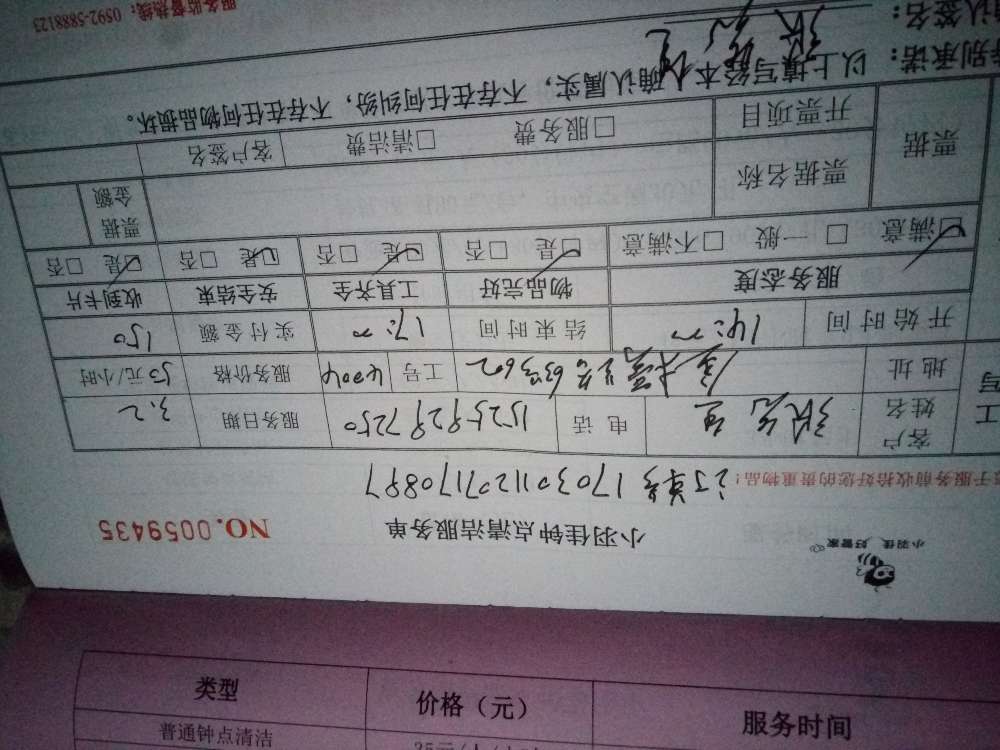 小羽佳 好管家
小羽佳钟点清洁服务单 NO.0059435
订单号 17030112071170897
于服务前收拾好您的贵重物品!
客户姓名 张先生 电话 15259297250 服务日期 3.2
地址 63号602 工号 4004 服务价格 50元/小时
开始时间 14:00 结束时间 17:00 实付金额 150
服务态度 物品完好 工具齐全 安全结束 收到卡片
☑满意 □一般 □不满意 ☑是 □否 ☑是 □否 ☑是 □否 ☑是 □否
票据 票据名称 票据金额
开票项目 □服务费 □清洁费 客户签名
特别承诺: 以上填写经本人确认属实,不存在任何纠纷,不存在任何物品损坏。
确认签名:
服务监督热线:0592-5888123
类型 价格(元) 服务时间
普通钟点清洁